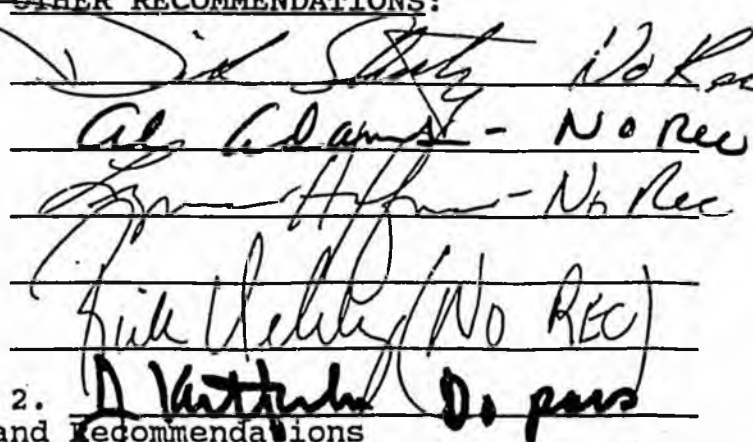 OTHER RECOMMENDATIONS:
Dick No Rec
Al Adams - No Rec
Lyman Hoffman - No Rec
Rick Uehling (NO REC)
2. Do pass
and Recommendations